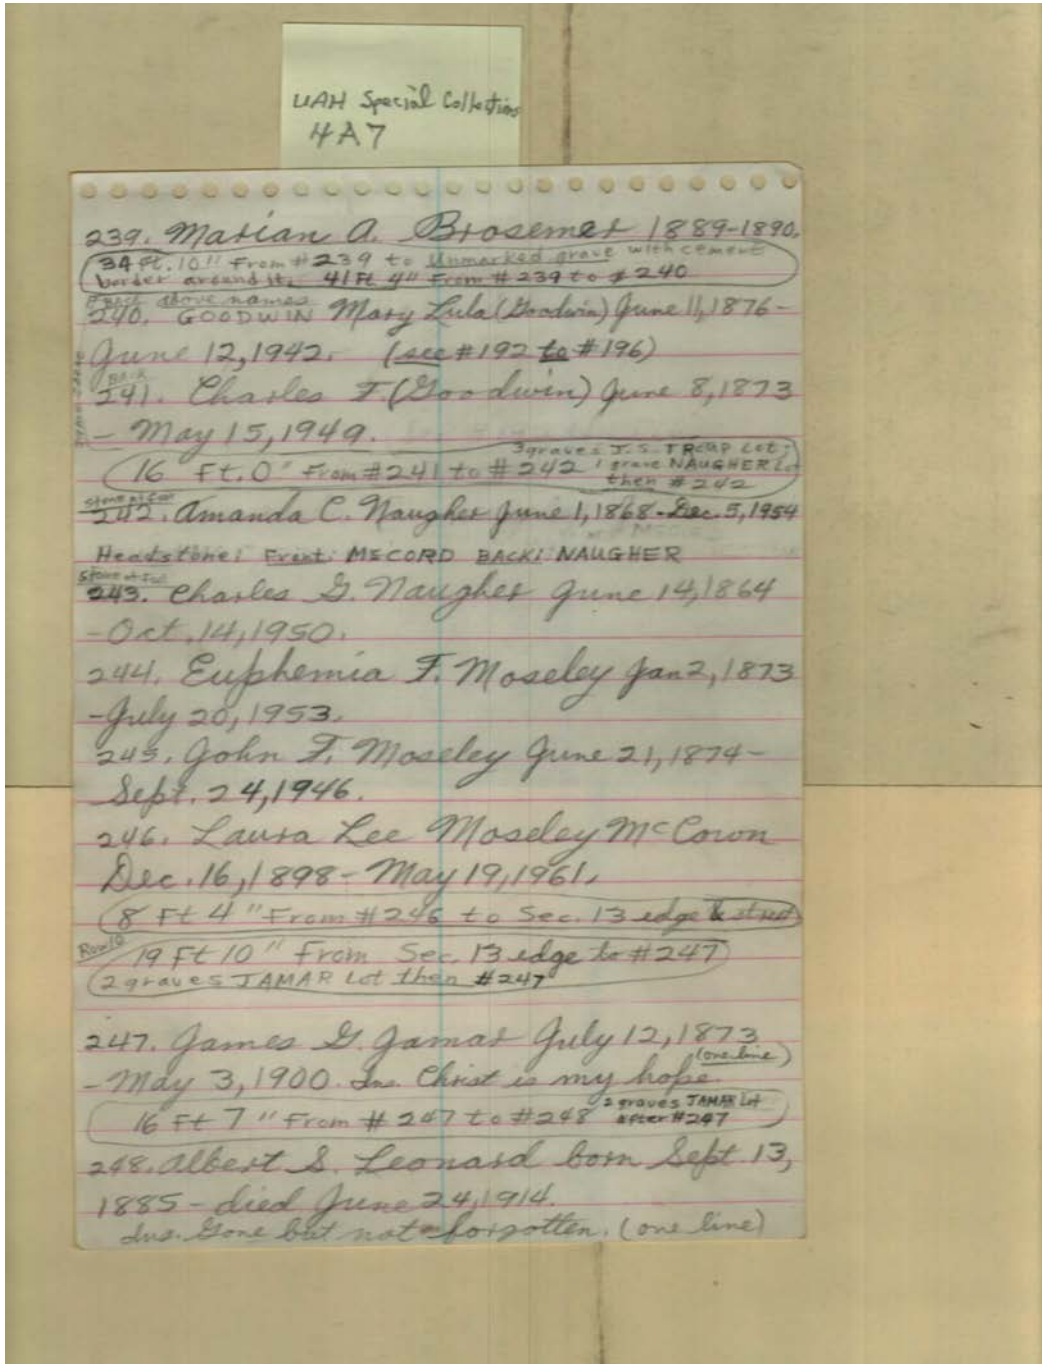 UAH Special Collections
4A7
239. Marian A. Brosemer 1889-1890.
34 Ft. 10" From #239 to Unmarked grave with cement
border around it. 41 Ft 4" From #239 to #240
BACK above names
240. GOODWIN Mary Lula (Goodwin) June 11, 1876-
June 12, 1942. (see #192 to #196)
BACK
241. Charles F. (Goodwin) June 8, 1873
- May 15, 1949.
3 graves J.S. TROUP Lot;
16 Ft. 0" From #241 to #242 1 grave NAUGHER Lot
then #242
Stone at foot
242. Amanda C. Naugher June 1, 1868-Dec. 5, 1954
Headstone: Front: MCCORD BACK: NAUGHER
Stone at foot
243. Charles G. Naugher June 14, 1864
-Oct. 14, 1950.
244. Euphemia F. Moseley Jan 2, 1873
-July 20, 1953.
245. John F. Moseley June 21, 1874-
Sept. 24, 1946.
246. Laura Lee Moseley McCown
Dec. 16, 1898- May 19, 1961.
8 Ft 4" From #246 to Sec. 13 edge & street
Row 10
19 Ft 10" From Sec. 13 edge to #247
2 graves JAMAR Lot then #247
247. James G. Jamar July 12, 1873
(one line)
-May 3, 1900. Ins. Christ is my hope.
2 graves JAMAR Lot
16 Ft 7" From #247 to #248 after #247
248. Albert S. Leonard born Sept. 13,
1885-died June 24, 1914.
Ins. Gone but not forgotten. (one line)